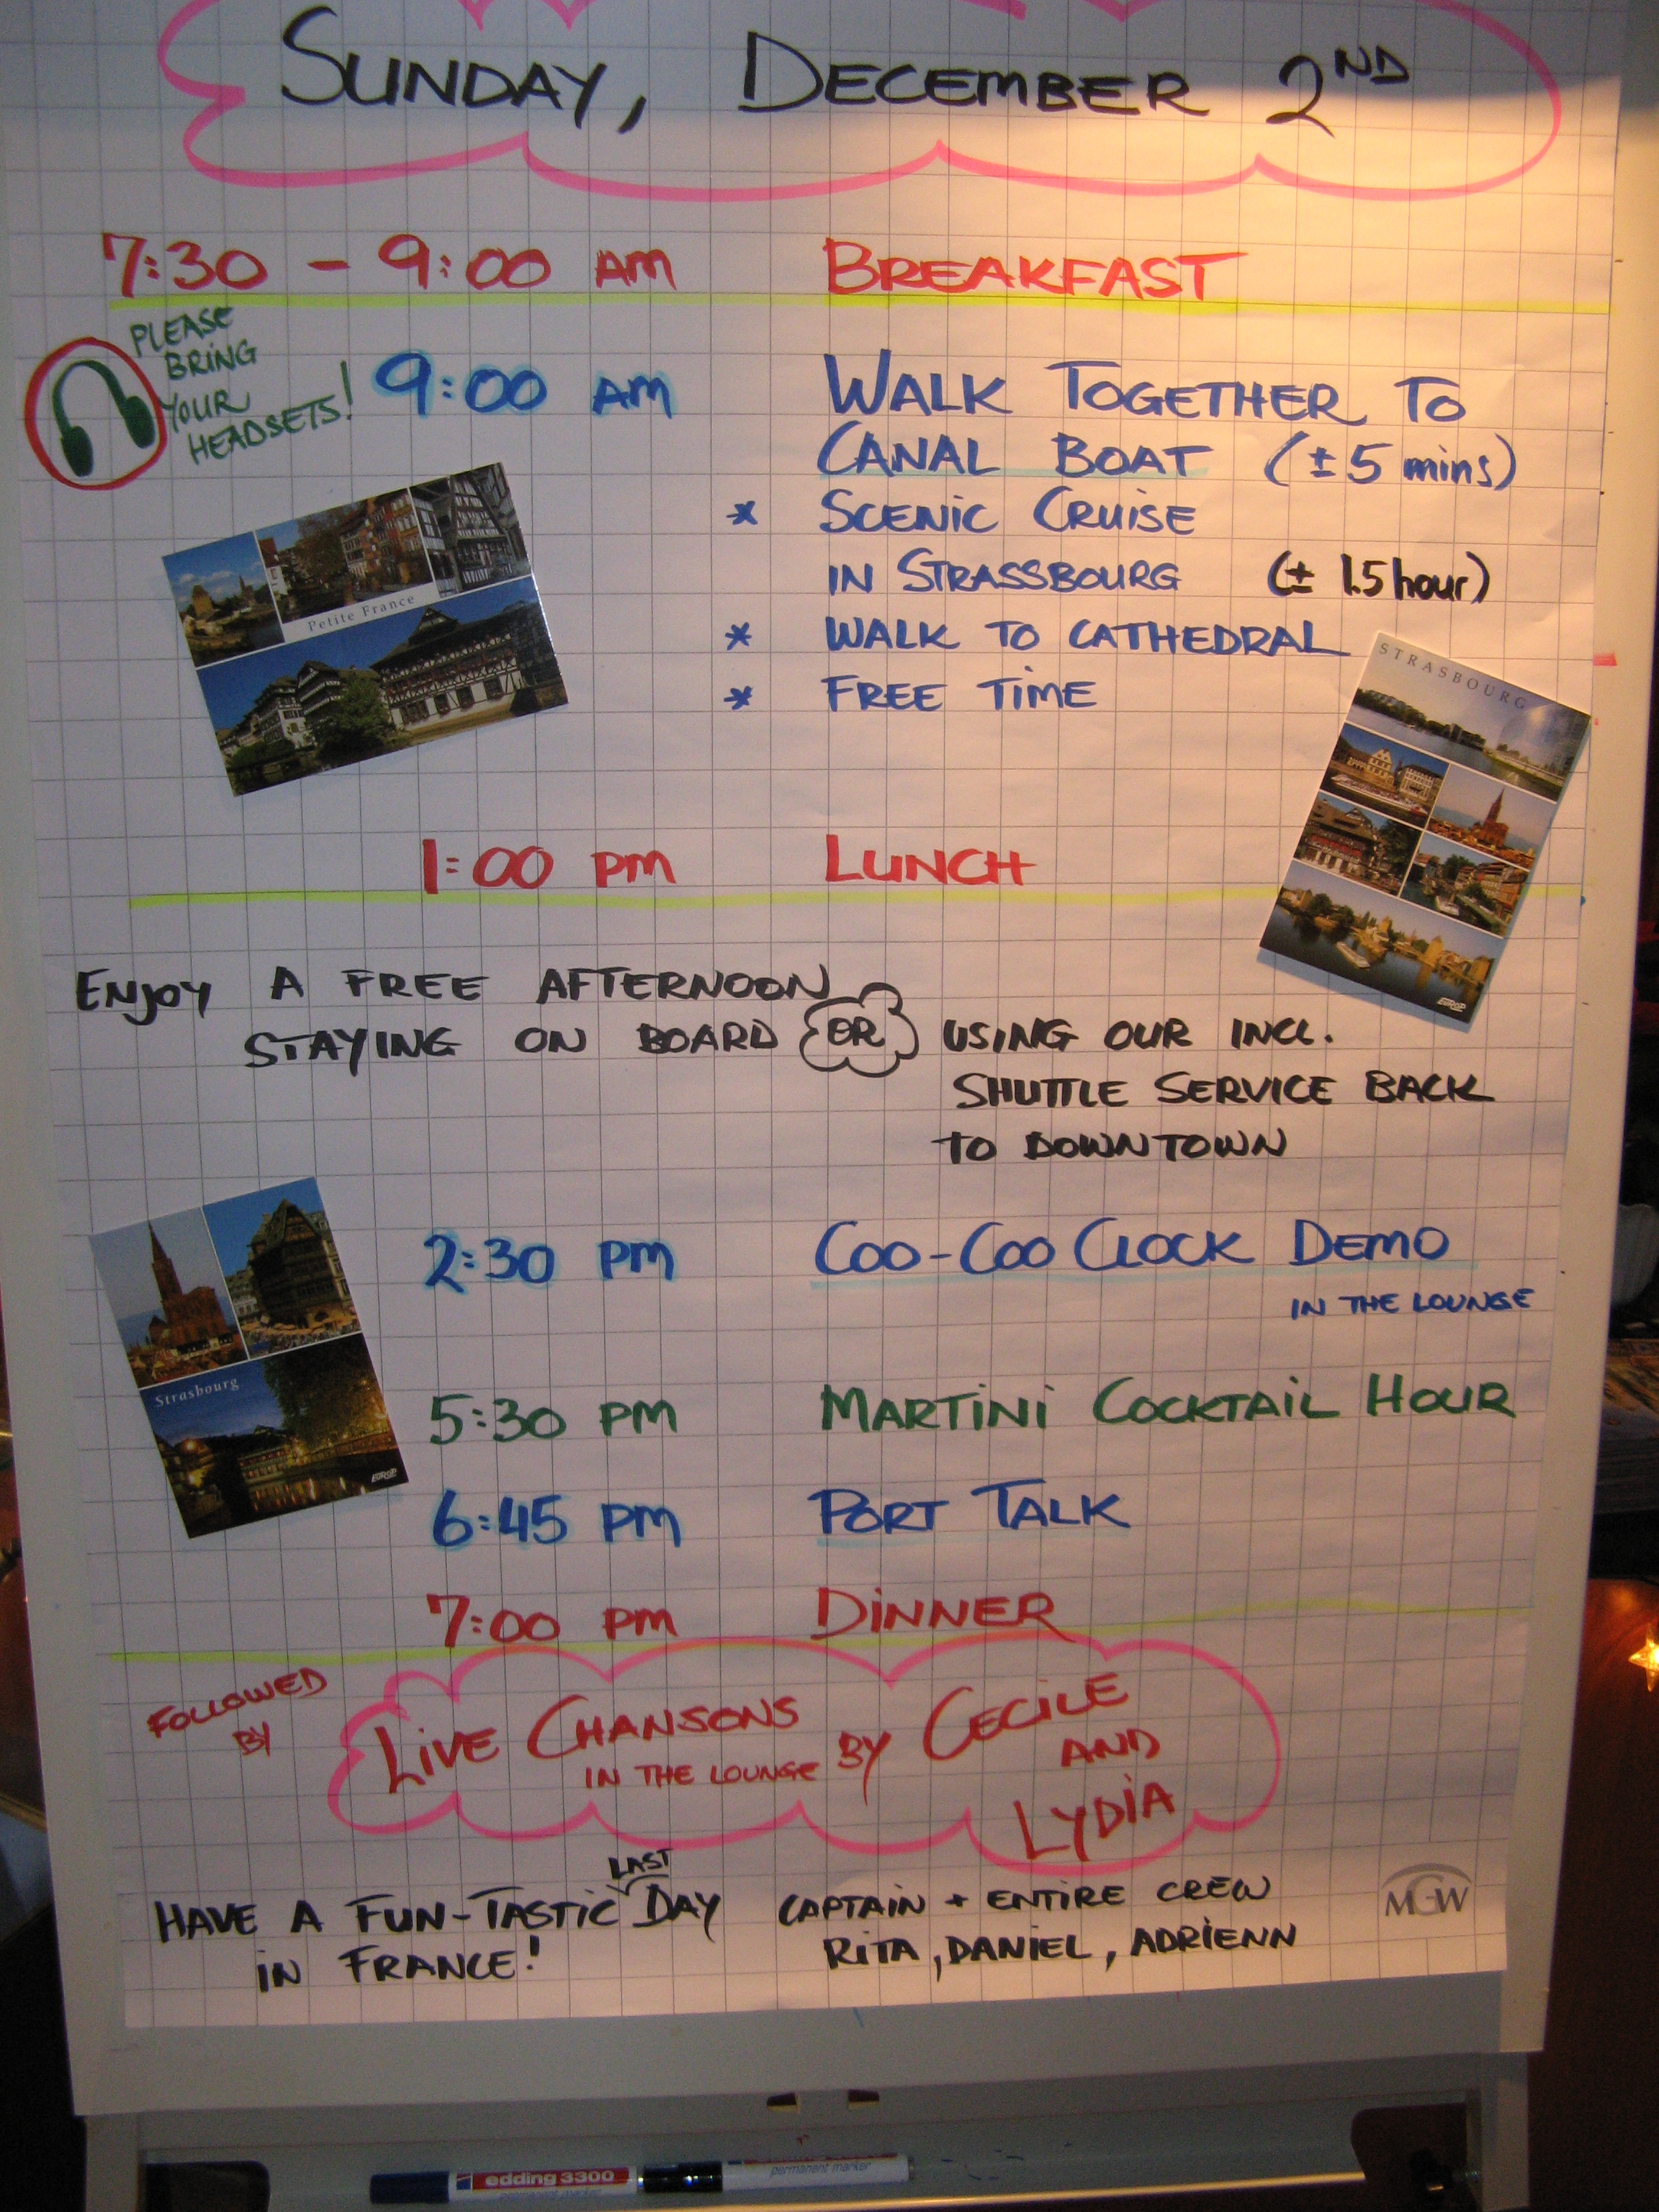 SUNDAY, DECEMBER 2ND
7:30 - 9:00 AM BREAKFAST
PLEASE
BRING
YOUR
HEADSETS!
9:00 AM WALK TOGETHER TO
CANAL BOAT (± 5 mins)
* SCENIC CRUISE
IN STRASSBOURG (± 1.5 hour)
* WALK TO CATHEDRAL
* FREE TIME
Petite France
STRASBOURG
EUROP
1:00 PM LUNCH
ENJOY A FREE AFTERNOON
STAYING ON BOARD OR USING OUR INCL.
SHUTTLE SERVICE BACK
TO DOWNTOWN
2:30 PM COO-COO CLOCK DEMO
IN THE LOUNGE
Strasbourg
EUROP
5:30 PM MARTINI COCKTAIL HOUR
6:45 PM PORT TALK
7:00 PM DINNER
FOLLOWED
BY
LIVE CHANSONS BY CECILE
IN THE LOUNGE
AND
LYDIA
HAVE A FUN-TASTIC LAST DAY
IN FRANCE!
CAPTAIN + ENTIRE CREW
RITA, DANIEL, ADRIENN
MGW
edding 3300
permanent marker
permanent marker